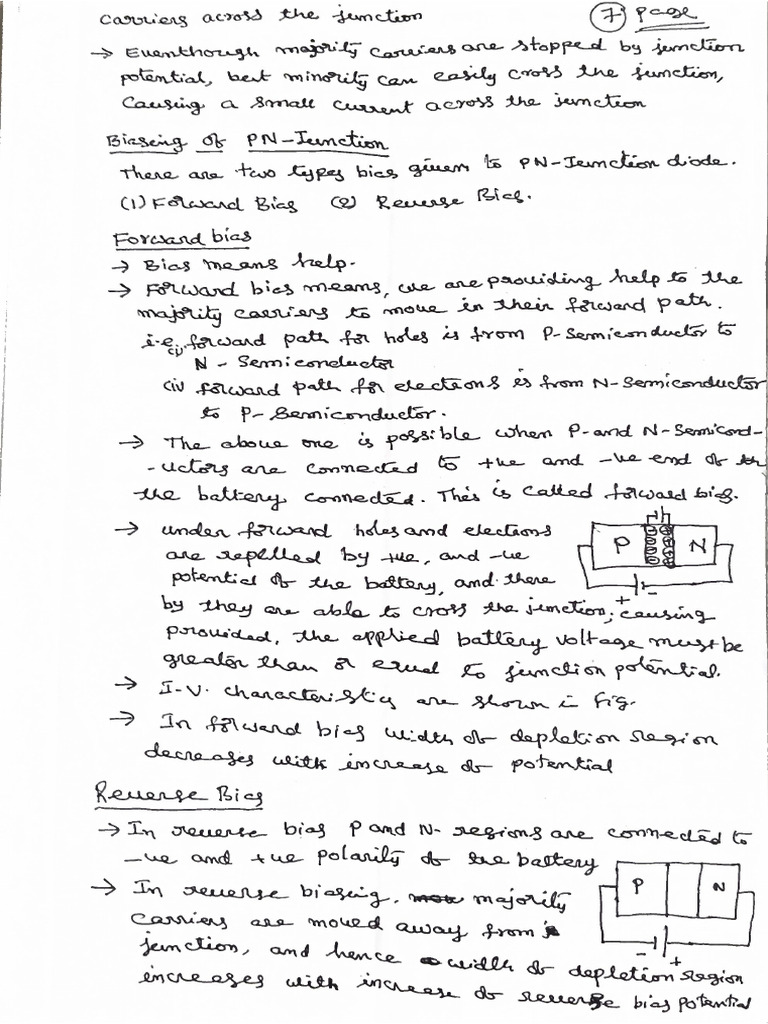 carriers across the junction
7 page
→ Eventhough majority carriers are stopped by junction
potential, but minority can easily cross the junction,
causing a small current across the junction
Biasing of PN-Junction
There are two types bias given to PN-Junction diode.
(1) Forward Bias (2) Reverse Bias.
Forward bias
→ Bias means help.
→ Forward bias means, we are providing help to the
majority carriers to move in their forward path.
i.e. (i) forward path for holes is from P-Semiconductor to
N - Semiconductor
(ii) forward path for electrons is from N-Semiconductor
to P- Semiconductor.
→ The above one is possible when P-and N-Semicond-
-uctors are connected to +ve and -ve end of th
the battery connected. This is called forward bias.
→ under forward holes and electrons
are replled by +ve, and -ve
potential of the battery, and there
by they are able to cross the junction, causing
provided, the applied battery voltage must be
greater than or equal to junction potential.
P N
+ -
→ I-V. characteristics are shown in fig.
→ In forward bias width of depletion region
decreases with increase of potential
Reverse Bias
→ In reverse bias P and N- regions are connected to
-ve and +ve polarity of the battery
→ In reverse biasing, majority
carriers are moved away from
junction, and hence width of depletion region
increases with increase of reverse bias potential
P N
- +